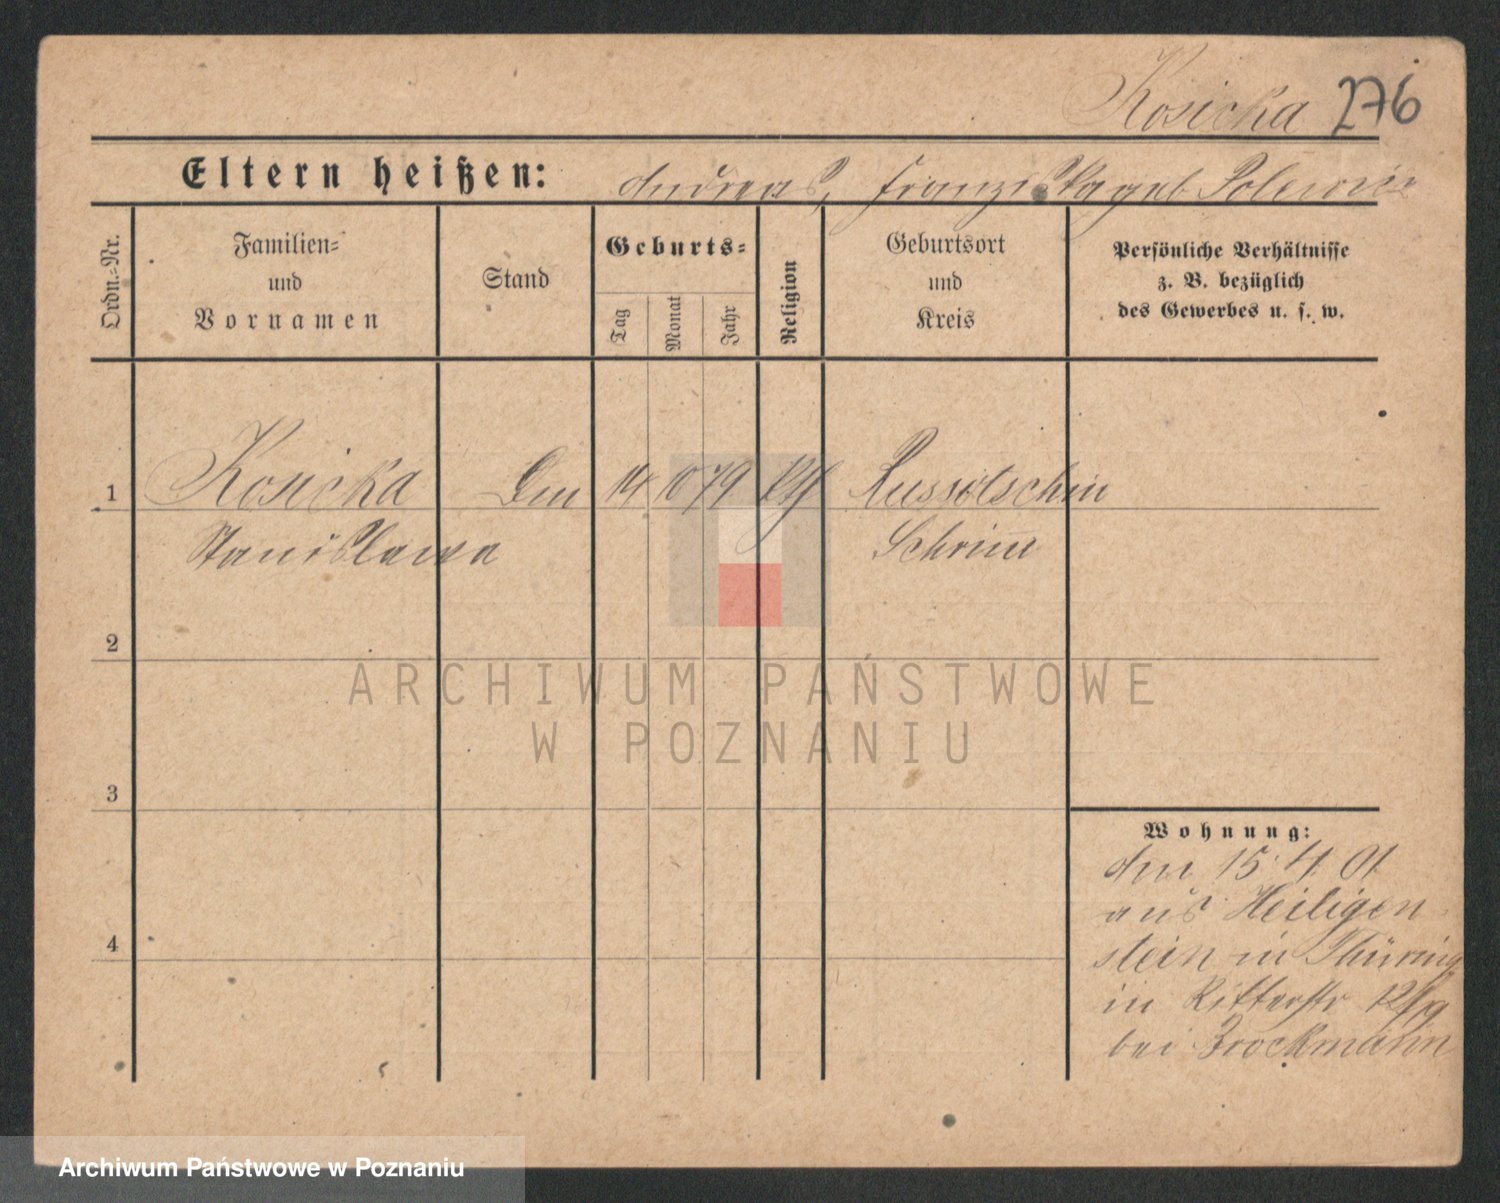 Kosicka 276
Eltern heißen: Andreas, Franziska geb
Ordn.-Nr.
Familien-
und
Vornamen
Stand
Geburts-
Tag
Monat
Jahr
Religion
Geburtsort
und
Kreis
Persönliche Verhältnisse
z. B. bezüglich
des Gewerbes u. s. w.
1 Kosicka 14 10 79 kth Russotschin
Stanislawa Schrim
2
ARCHIWUM PAŃSTWOWE
W POZNANIU
3
Wohnung:
den 15 4 01
aus Heiligen
stein in Thüring
in Ritterstr
bei Brockmann
4
Archiwum Państwowe w Poznaniu